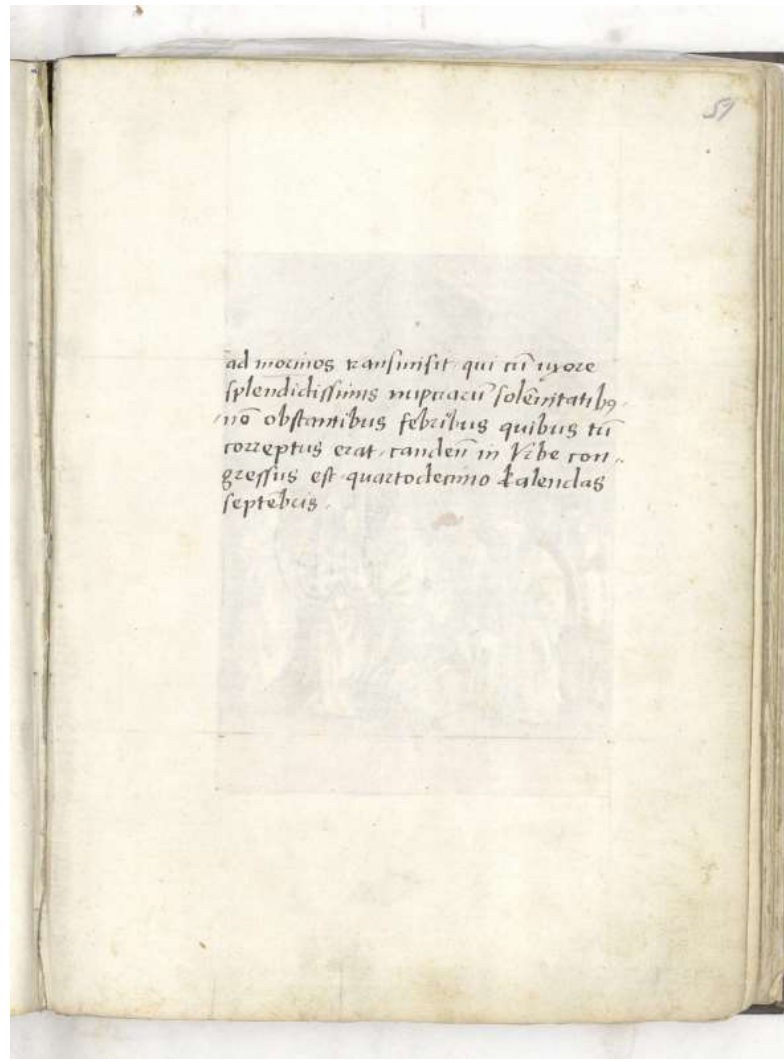 59
ad morinos transmisit qui cū uxore
splendidissimis nuptiarū solēnitatibꝯ
nō obstantibus febribus quibus tū
correptus erat tandem in Vrbe con¬
gressus est quartodecimo kalendas
septēbris.